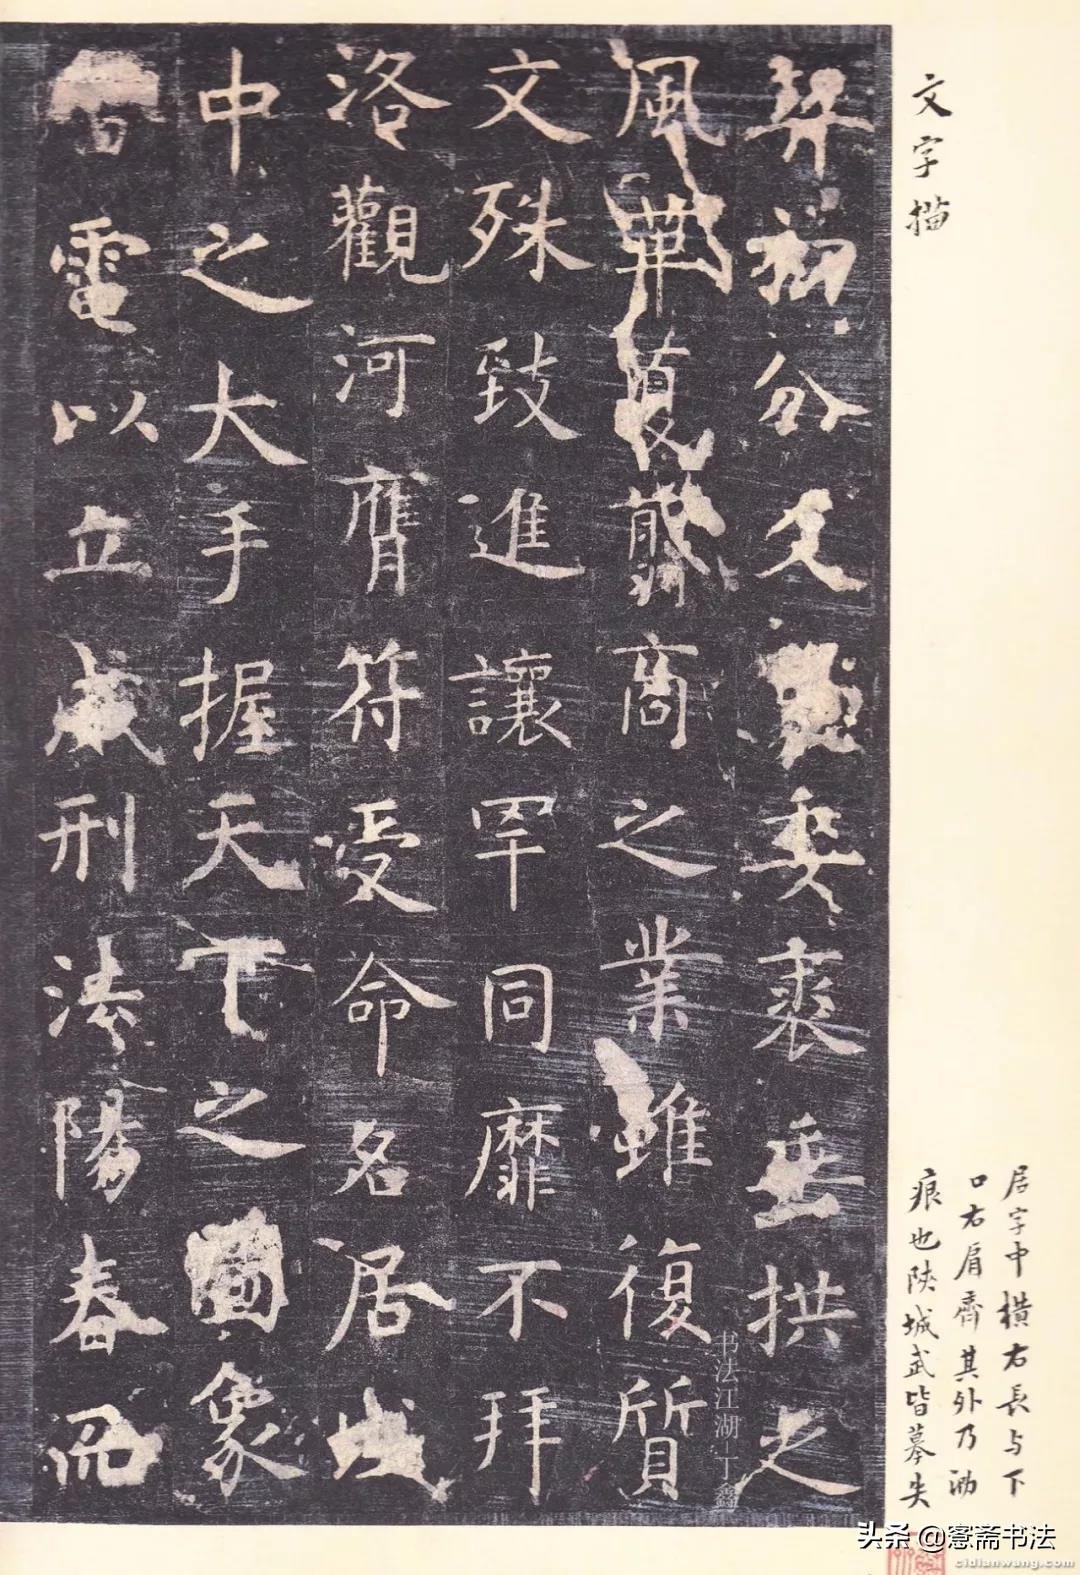 文字描
居字中橫右長与下
口右肩齊其外乃泐
痕也陝城武皆摹失
契初分爻委裘垂拱之
風革夏翦商之業雖復質
文殊致進讓罕同靡不拜
洛觀河膺符受命名居域
中之大手握天下之圖象
雷電以立威刑法陽春而
书法江湖-丁鑫
头条@窓斋书法
cidianwang.com